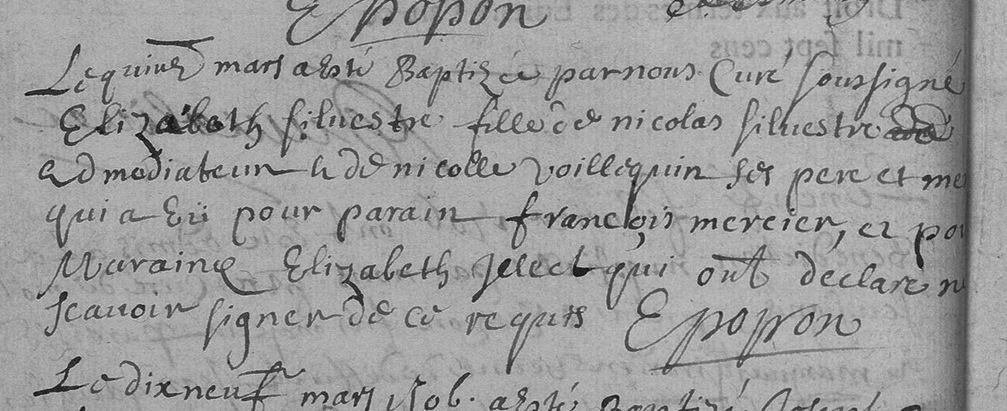 E popon
Le quinze mars a esté Baptizée par nous Curé soussigné
Elizabeth silvestre fille de nicolas silvestre
admodiateur & de nicolle voillequin ses pere et me
qui a Eü pour parain francois mercier, et pou
Maraine Elizabeth Jelect qui ont declaré n
scavoir signer de ce requis E popon
Le dix neuf mars 1706. a esté Baptizé Joseph